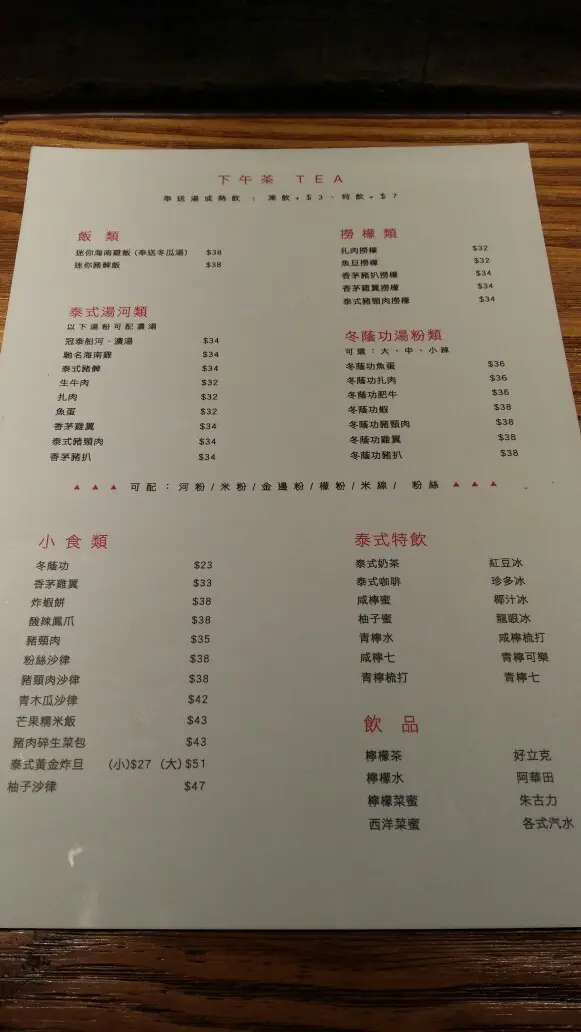 下午茶 TEA
奉送湯或熱飲 : 凍飲+$3、特飲+$7
飯 類
迷你海南雞飯 (奉送冬瓜湯) $38
迷你豬髀飯 $38
泰式湯河類
以下湯粉可配濃湯
冠泰船河 · 濃湯 $34
馳名海南雞 $34
泰式豬髀 $34
生牛肉 $32
扎肉 $32
魚蛋 $32
香茅雞翼 $34
泰式豬頸肉 $34
香茅豬扒 $34
撈檬類
扎肉撈檬 $32
魚旦撈檬 $32
香茅豬扒撈檬 $34
香茅雞翼撈檬 $34
泰式豬頸肉撈檬 $34
冬蔭功湯粉類
可選：大、中、小辣
冬蔭功魚蛋 $36
冬蔭功扎肉 $36
冬蔭功肥牛 $36
冬蔭功蝦 $38
冬蔭功豬頸肉 $38
冬蔭功雞翼 $38
冬蔭功豬扒 $38
▲ ▲ ▲ 可配：河粉/米粉/金邊粉/檬粉/米線/ 粉絲 ▲ ▲ ▲
小食類
冬蔭功 $23
香茅雞翼 $33
炸蝦餅 $38
酸辣鳳爪 $38
豬頸肉 $35
粉絲沙律 $38
豬頸肉沙律 $38
青木瓜沙律 $42
芒果糯米飯 $43
豬肉碎生菜包 $43
泰式黃金炸旦 (小)$27 (大)$51
柚子沙律 $47
泰式特飲
泰式奶茶 紅豆冰
泰式咖啡 珍多冰
咸檸蜜 椰汁冰
柚子蜜 龍眼冰
青檸水 咸檸梳打
咸檸七 青檸可樂
青檸梳打 青檸七
飲 品
檸檬茶 好立克
檸檬水 阿華田
檸檬菜蜜 朱古力
西洋菜蜜 各式汽水